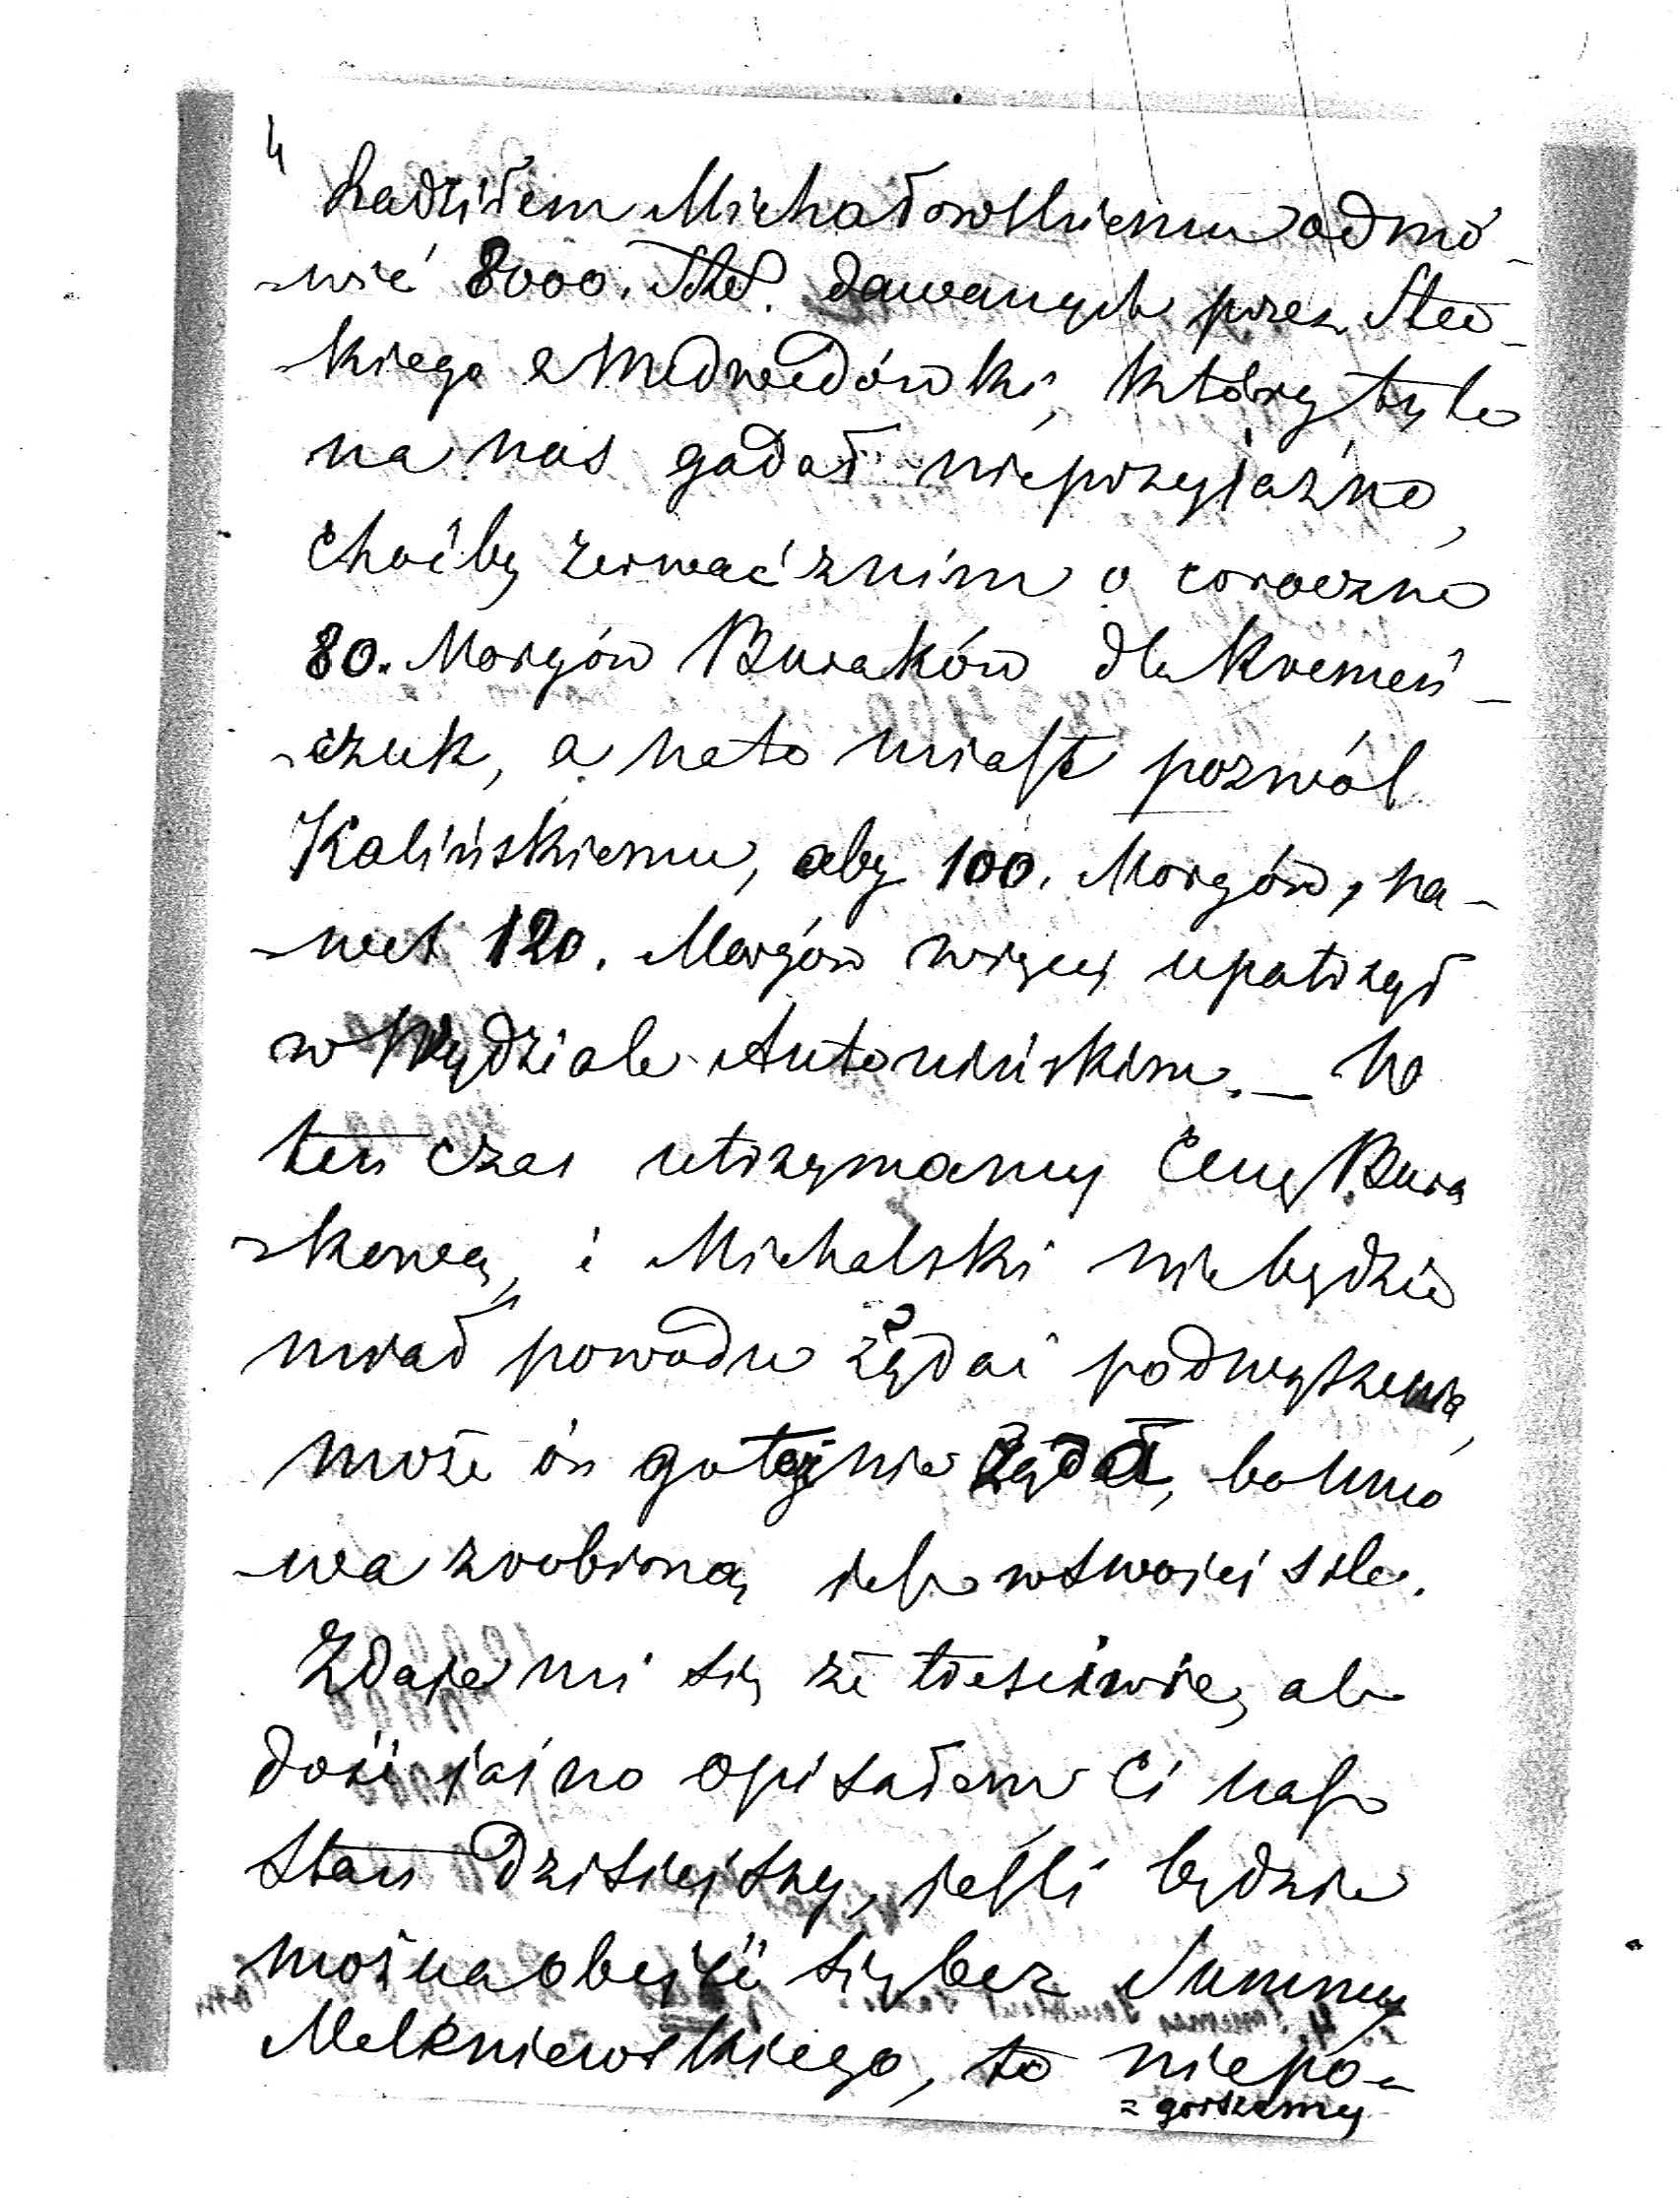 4
kadziłem Michałowskiemu odmó-
-wić 8000. dawanych przez Stec-
-kiego z Medwedówki, który tyle
na nas gadał nieprzyjaźno,
choćby zerwać znim o coroczne
80. Morgów Buraków dla Kremeń-
-czuk, a nato miast pozwól
Kalińskiemu, aby 100. Morgów, na-
-wet 120. Morgów więcej upatrzył
w Wydziale Antonińskim. — W
ten czas utrzymamy Cenę Bura
-kową, i Michalski nie będzie
miał powodu żądać podwyższenia,
może ón go też nie żądał, bo Umo
-wa zrobioną jest w swojej sile.
Zdaje mi się że treściwie, ale
dość jasno opisałem Ci nasz
stan dzisiejszy, jeśli będzie
można obejść się bez Summy
Melėniewskiego, to niepo-
=gorszemy